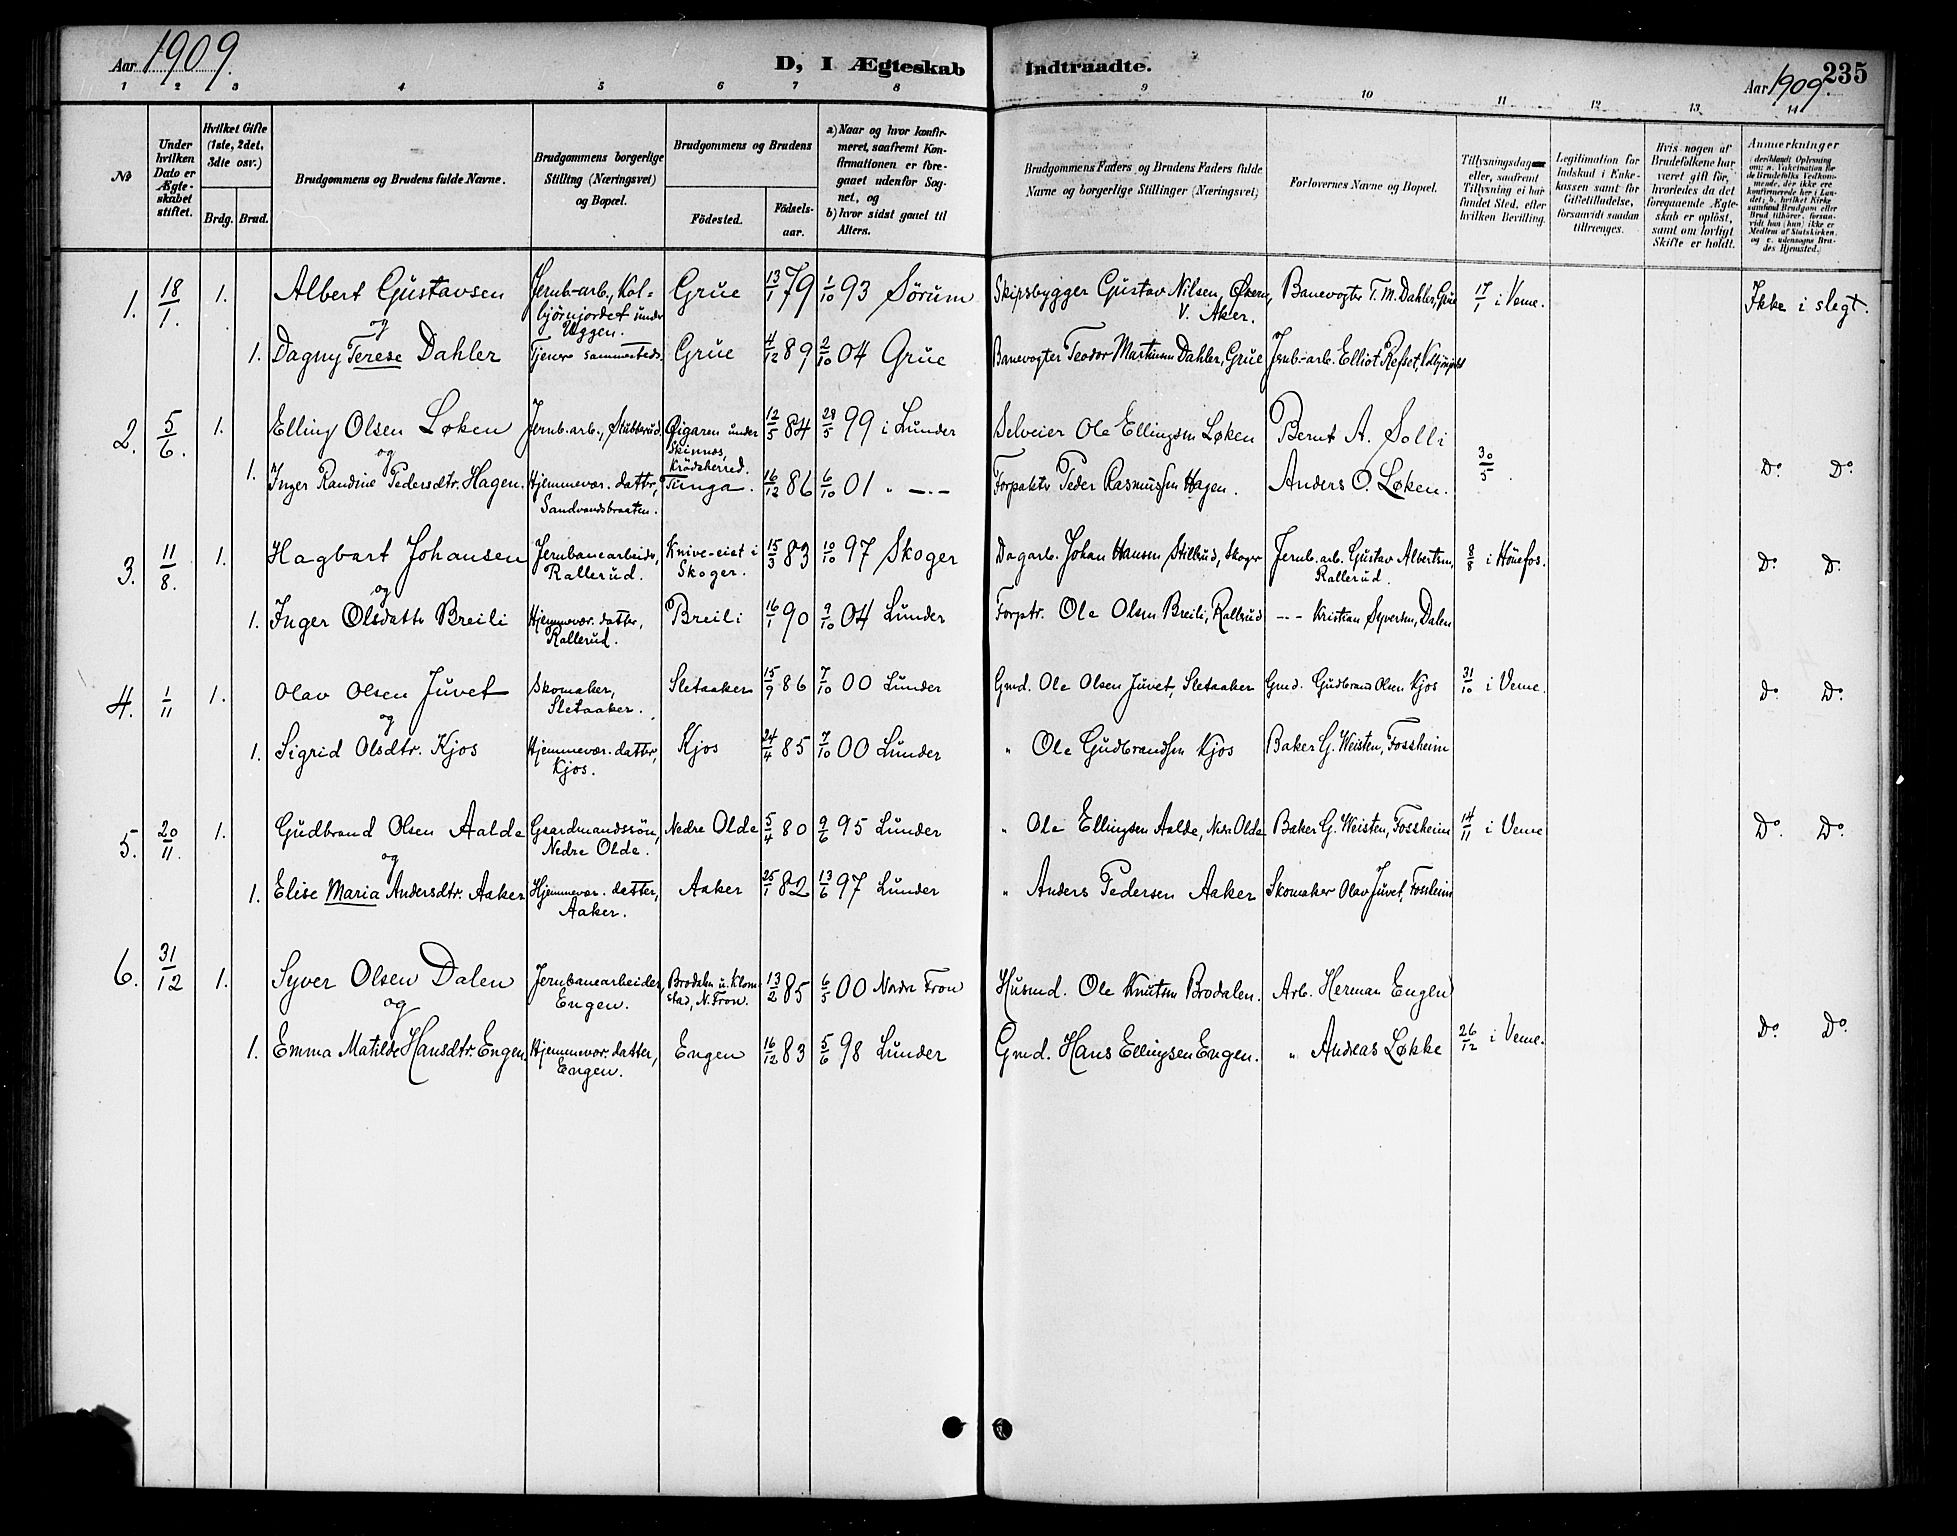 Aar 1909.
D, I Ægteskab Indtraadte.
Aar 1909. 235
1 2 3 4 5 6 7 8 9 10 11 12 13 14
No
Under hvilken Dato er Ægteskabet stiftet.
Hvilket Gifte (1ste, 2det, 3die osv.)
Brdg. Brud.
Brudgommens og Brudens fulde Navne.
Brudgommens borgerlige Stilling (Næringsvei) og Bopæl.
Brudgommens og Brudens
Födested. Födsels-aar.
a) Naar og hvor konfirmeret, saafremt Konfirmationen er foregaaet udenfor Sognet, og
b) hvor sidst gaaet til Alters.
Brudgommens Faders og Brudens Faders fulde Navne og borgerlige Stillinger (Næringsvei)
Forlovernes Navne og Bopæl.
Tillysningsdag eller, saafremt Tillysning ei har fundet Sted, efter hvilken Bevilling.
Legitimation for Indskud i Enkekassen samt for Giftetilladelse, forsaavidt saadan tiltrænges.
Hvis nogen af Brudefolkene har været gift før, hvorledes da det foregaaende Ægteskab er oplöst, samt om lovligt Skifte er holdt.
Anmerkninger
1. 18/1. 1. Albert Gustavsen Jernb.-arb., Kolbjörnjordet under Uggen. Grue 13/1 79 1/10 93 Sörum Skipsbygger Gustav Nilsen, Økern, V. Aker. Banevogter T. M. Dahler, Grue 17/1 i Veme. Ikke i slegt.
og
1. Dagny Terese Dahler Tjener sammesteds. Grue 4/12 89 2/10 04 Grue Banevogter Teodor Martinsen Dahler, Grue Jernb.-arb. Elliot Refset,
2. 5/6. 1. Elling Olsen Løken Jernb.arb., Stubberud. Øigaren under Skinnes, Krödsherred. 12/5 84 28/5 99 i Lunder Selveier Ole Ellingsen Løken Bernt A. Solli 30/5. Do. Do.
og
1. Inger Randine Pedersdtr. Hagen. Hjemmevær. datter, Sandvandsbraaten. Tunga. 16/12 86 6/10 01 " —.— Forpakter Peder Rasmussen Hagen. Anders O. Løken.
3. 11/8. 1. Hagbart Johansen Jernbanearbeider, Rallerud. Knive-eiet i Skoger. 15/3 83 10/10 97 Skoger Dagarb. Johan Hansen Stilbud, Skoger Jernb.arb. Gustav Albertsen, Rallerud. 8/8 i Hönefos. Do. Do.
og
1. Inger Olsdatter Breili Hjemmevær. datter, Rallerud. Breili 16/1 90 9/10 04 Lunder Forptr. Ole Olsen Breili, Rallerud -- Kristian Syversen, Dalen
4. 1/11 1. Olav Olsen Juvet Skomaker, Sletaaker. Sletaaker 15/9 86 7/10 00 Lunder Gmd. Ole Olsen Juvet, Sletaaker Gmd. Gudbrand Olsen Kjos 31/10 i Veme. Do. Do.
og
1. Sigrid Olsdtr. Kjos Hjemmevær. datter, Kjos. Kjos 24/4 85 7/10 00 Lunder " Ole Gudbrandsen Kjos Baker G. Weisten, Fossheim
5. 20/11. 1. Gudbrand Olsen Aalde Gaardmandssön, Nedre Olde. Nedre Olde 5/4 80 9/6 95 Lunder " Ole Ellingsen Aalde, Nedre Olde Baker G. Weisten, Fossheim 14/11 i Veme Do. Do.
og
1. Elise Maria Andersdtr. Aaker Hjemmevær. datter, Aaker. Aaker 25/1 82 13/6 97 Lunder " Anders Pedersen Aaker Skomaker Olav Juvet, Fossheim
6. 31/12 1. Syver Olsen Dalen Jernbanearbeider, Engen. Brodalen u. Klomstad, N. Fron. 13/2 85 6/5 00 Nordre Fron Husmd. Ole Knutsen Brodalen. Arb. Herman Engen
og
1. Emma Matilde Hansdtr. Engen. Hjemmevær. datter, Engen. Engen 16/12 83 5/6 98 Lunder Gmd. Hans Ellingsen Engen. " Andreas Løkke 26/12 i Veme. Do. Do.